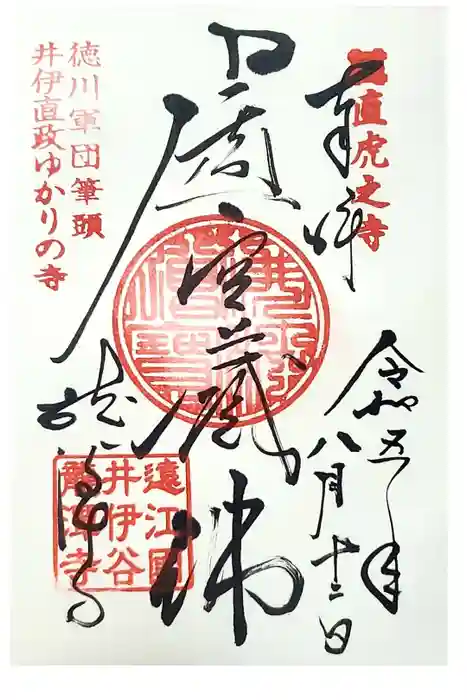 直虎之寺
奉拝
令和五年
八月十三日
虚空蔵佛
龍潭寺
遠江國
井伊谷
龍潭寺
徳川軍団筆頭
井伊直政ゆかりの寺